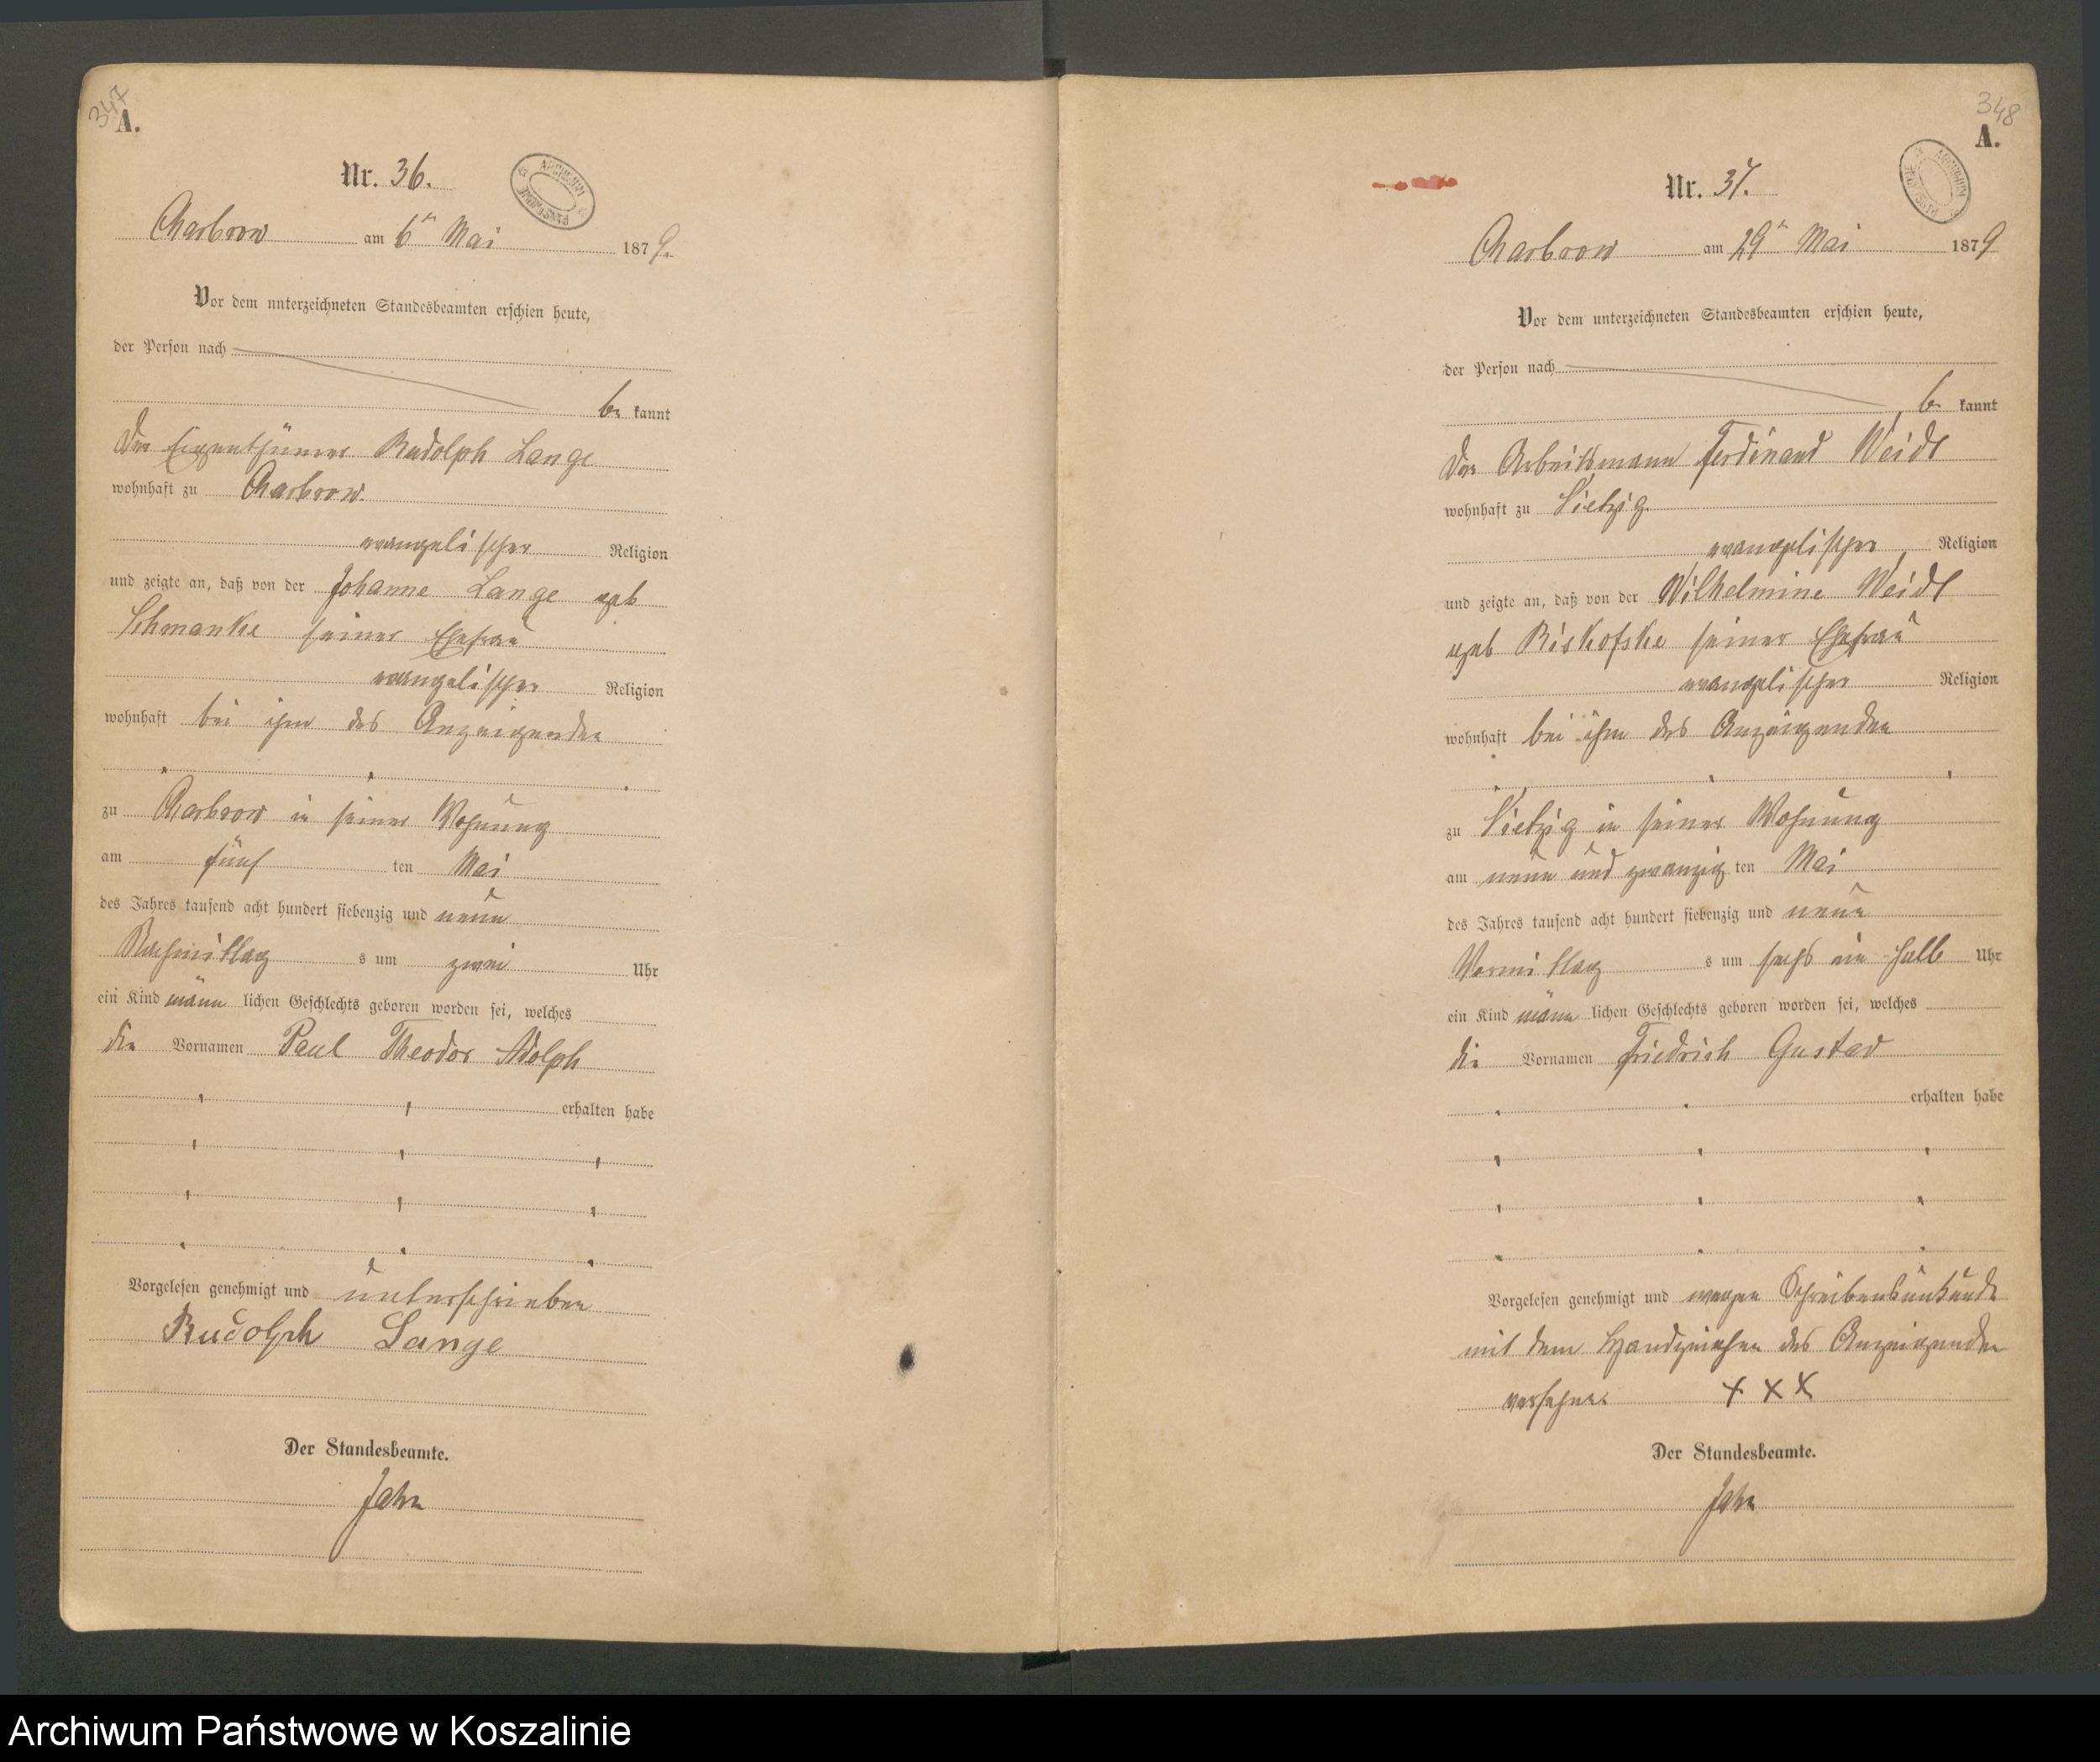 347
A.
Nr. 36.
Charbrow am 6ten Mai 1879.
Vor dem unterzeichneten Standesbeamten erschien heute,
der Person nach
be kannt
Der Eigenthümer Rudolph Lange
wohnhaft zu Charbrow.
evangelischer Religion
und zeigte an, daß von der Johanne Lange geb
Schmanke seiner Ehefrau
evangelischer Religion
wohnhaft bei ihm des Anzeigenden
zu Charbrow in seiner Wohnung
am fünf ten Mai
des Jahres tausend acht hundert siebenzig und neun
Nachmittag s um zwei Uhr
ein Kind männ lichen Geschlechts geboren worden sei, welches
die Vornamen Paul Theodor Adolph
erhalten habe
Vorgelesen genehmigt und unterschrieben
Rudolph Lange
Der Standesbeamte.
Jahn
348
A.
Nr. 37.
Charbrow am 29ten Mai 1879
Vor dem unterzeichneten Standesbeamten erschien heute,
der Person nach
be kannt
Der Arbeitsmann Ferdinand Weidt
wohnhaft zu Vietzig
evangelischer Religion
und zeigte an, daß von der Wilhelmine Weidt
geb Riskofske seiner Ehefrau
evangelischer Religion
wohnhaft bei ihm des Anzeigenden
zu Vietzig in seiner Wohnung
am neun und zwanzig ten Mai
des Jahres tausend acht hundert siebenzig und neun
Vormittag s um sechs ein halb Uhr
ein Kind männ lichen Geschlechts geboren worden sei, welches
die Vornamen Friedrich Gustav
erhalten habe
Vorgelesen genehmigt und wegen Schreibensunkunde
mit dem Handzeichen des Anzeigenden
versehen. + x x
Der Standesbeamte.
Jahn
Archiwum Państwowe w Koszalinie